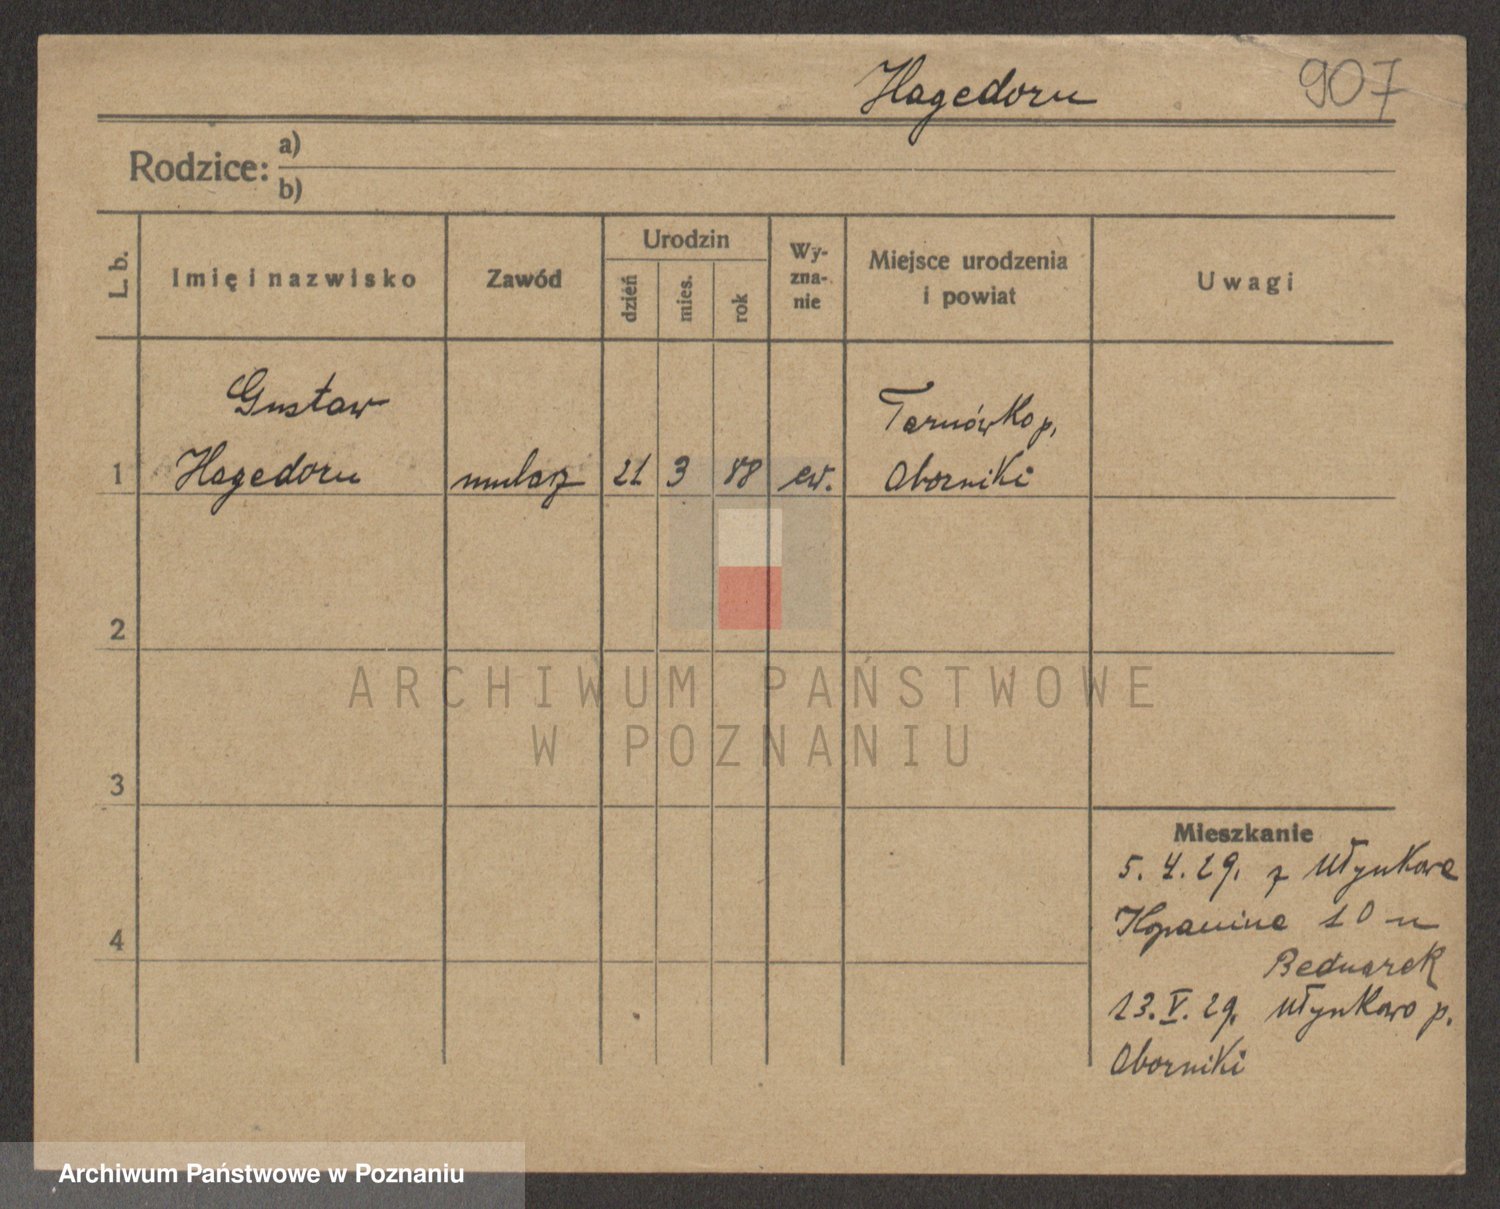 Hagedorn 907
Rodzice: a)
b)
L. b.
Imię i nazwisko
Zawód
Urodzin
dzień
mies.
rok
Wy-
zna-
nie
Miejsce urodzenia
i powiat
Uwagi
Gustaw
Tarnówko p.
1 Hagedorn mularz 21 3 88 ew. Oborniki
2
3
4
Mieszkanie
5. 4. 29. z Młynkowa
Kopanina 10 u
Bednarek
13. V. 29. Młynkowo p.
Oborniki
ARCHIWUM PAŃSTWOWE
W POZNANIU
Archiwum Państwowe w Poznaniu